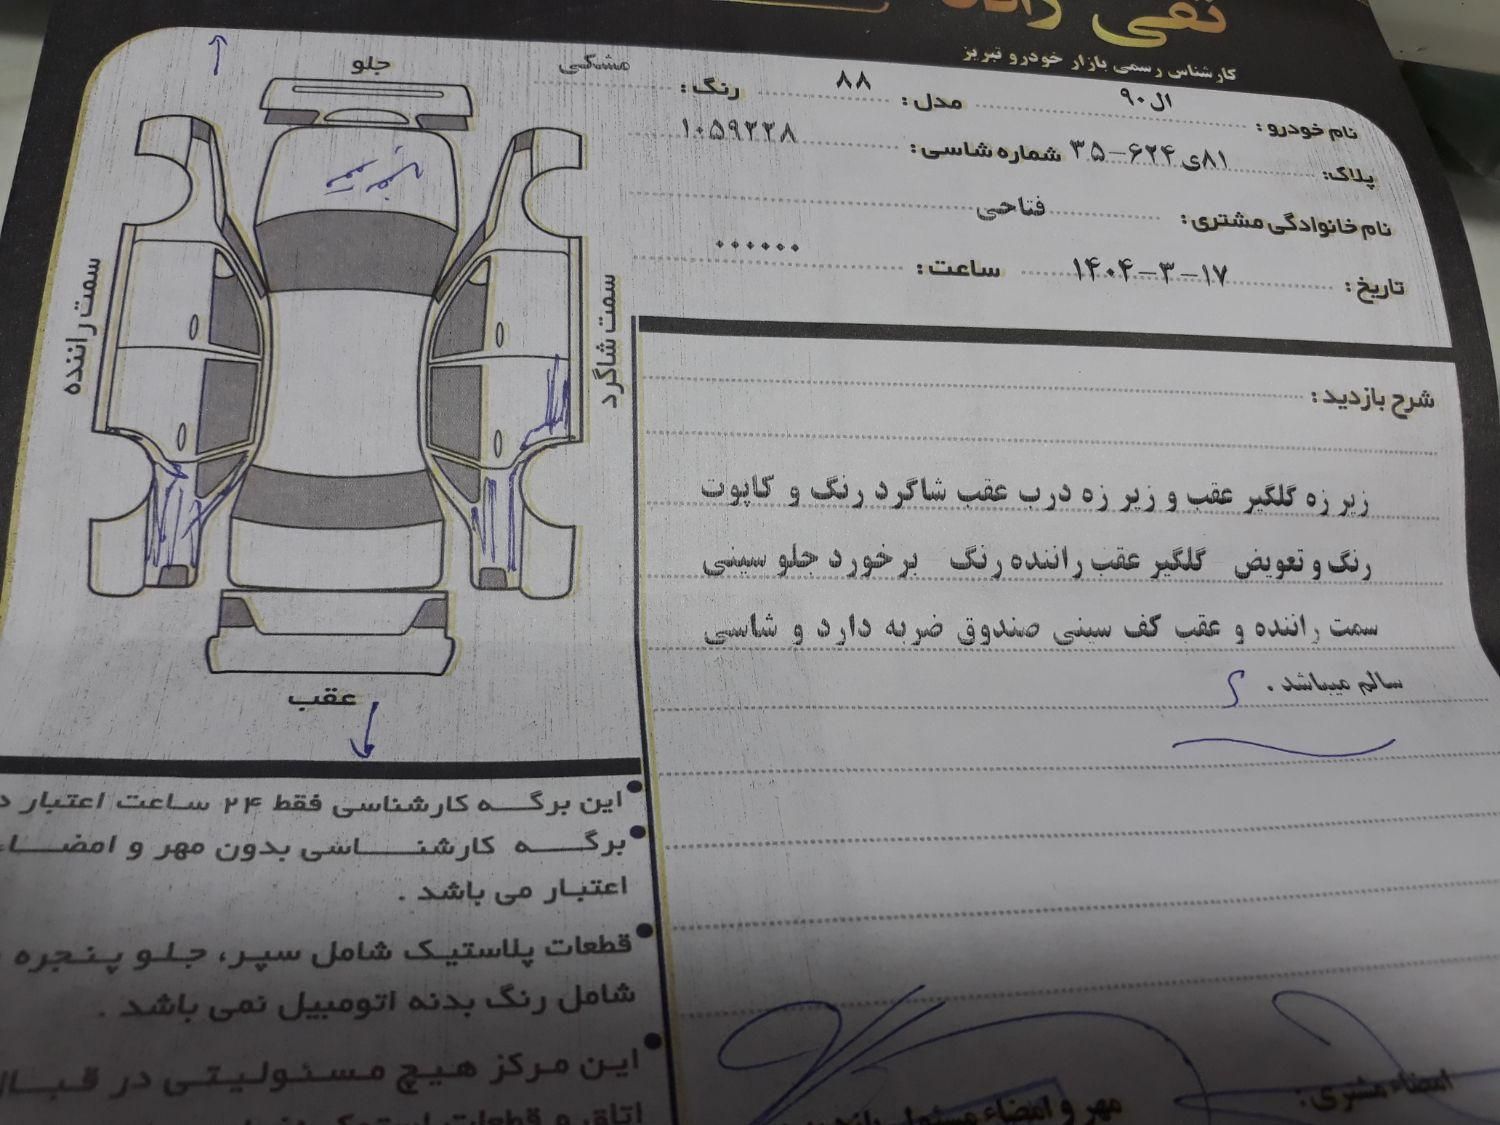 تقی زاده
کارشناس رسمی بازار خودرو تبریز
نام خودرو: ال۹۰ مدل: ۸۸ رنگ: مشکی
پلاک: ۸۱ی۶۲۴-۳۵ شماره شاسی: ۱۰۵۹۲۲۸
نام خانوادگی مشتری: فتاحی
تاریخ: ۱۴۰۴-۳-۱۷ ساعت: ۰۰۰۰۰۰
جلو
سمت راننده
سمت شاگرد
عقب
شرح بازدید:
زیر زه گلگیر عقب و زیر زه درب عقب شاگرد رنگ و کاپوت
رنگ و تعویض گلگیر عقب راننده رنگ برخورد جلو سینی
سمت راننده و عقب کف سینی صندوق ضربه دارد و شاسی
سالم میباشد.
• این برگه کارشناسی فقط ۲۴ ساعت اعتبار
• برگه کارشناسی بدون مهر و امضاء
اعتبار می باشد.
• قطعات پلاستیک شامل سپر، جلو پنجره
شامل رنگ بدنه اتومبیل نمی باشد.
• این مرکز هیچ مسئولیتی در قبال
اتاق و قطعات
مهر و امضاء مسئول
امضاء مشتری: